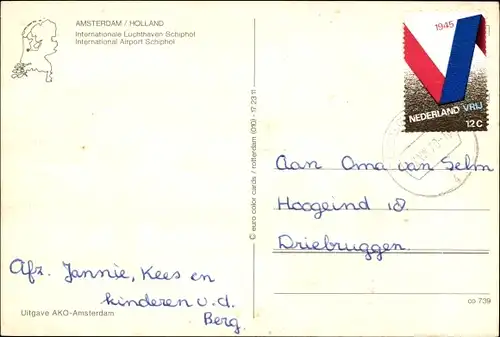 AMSTERDAM / HOLLAND
Internationale Luchthaven Schiphol
International Airport Schiphol
1945
NEDERLAND VRIJ
12 C
© euro color cards / rotterdam (010) - 17 23 11
Aan Oma van Selm
Hoogeind 18
Driebruggen.
Afz. Jannie, Kees en
kinderen v.d.
Berg.
Uitgave AKO-Amsterdam
co 739